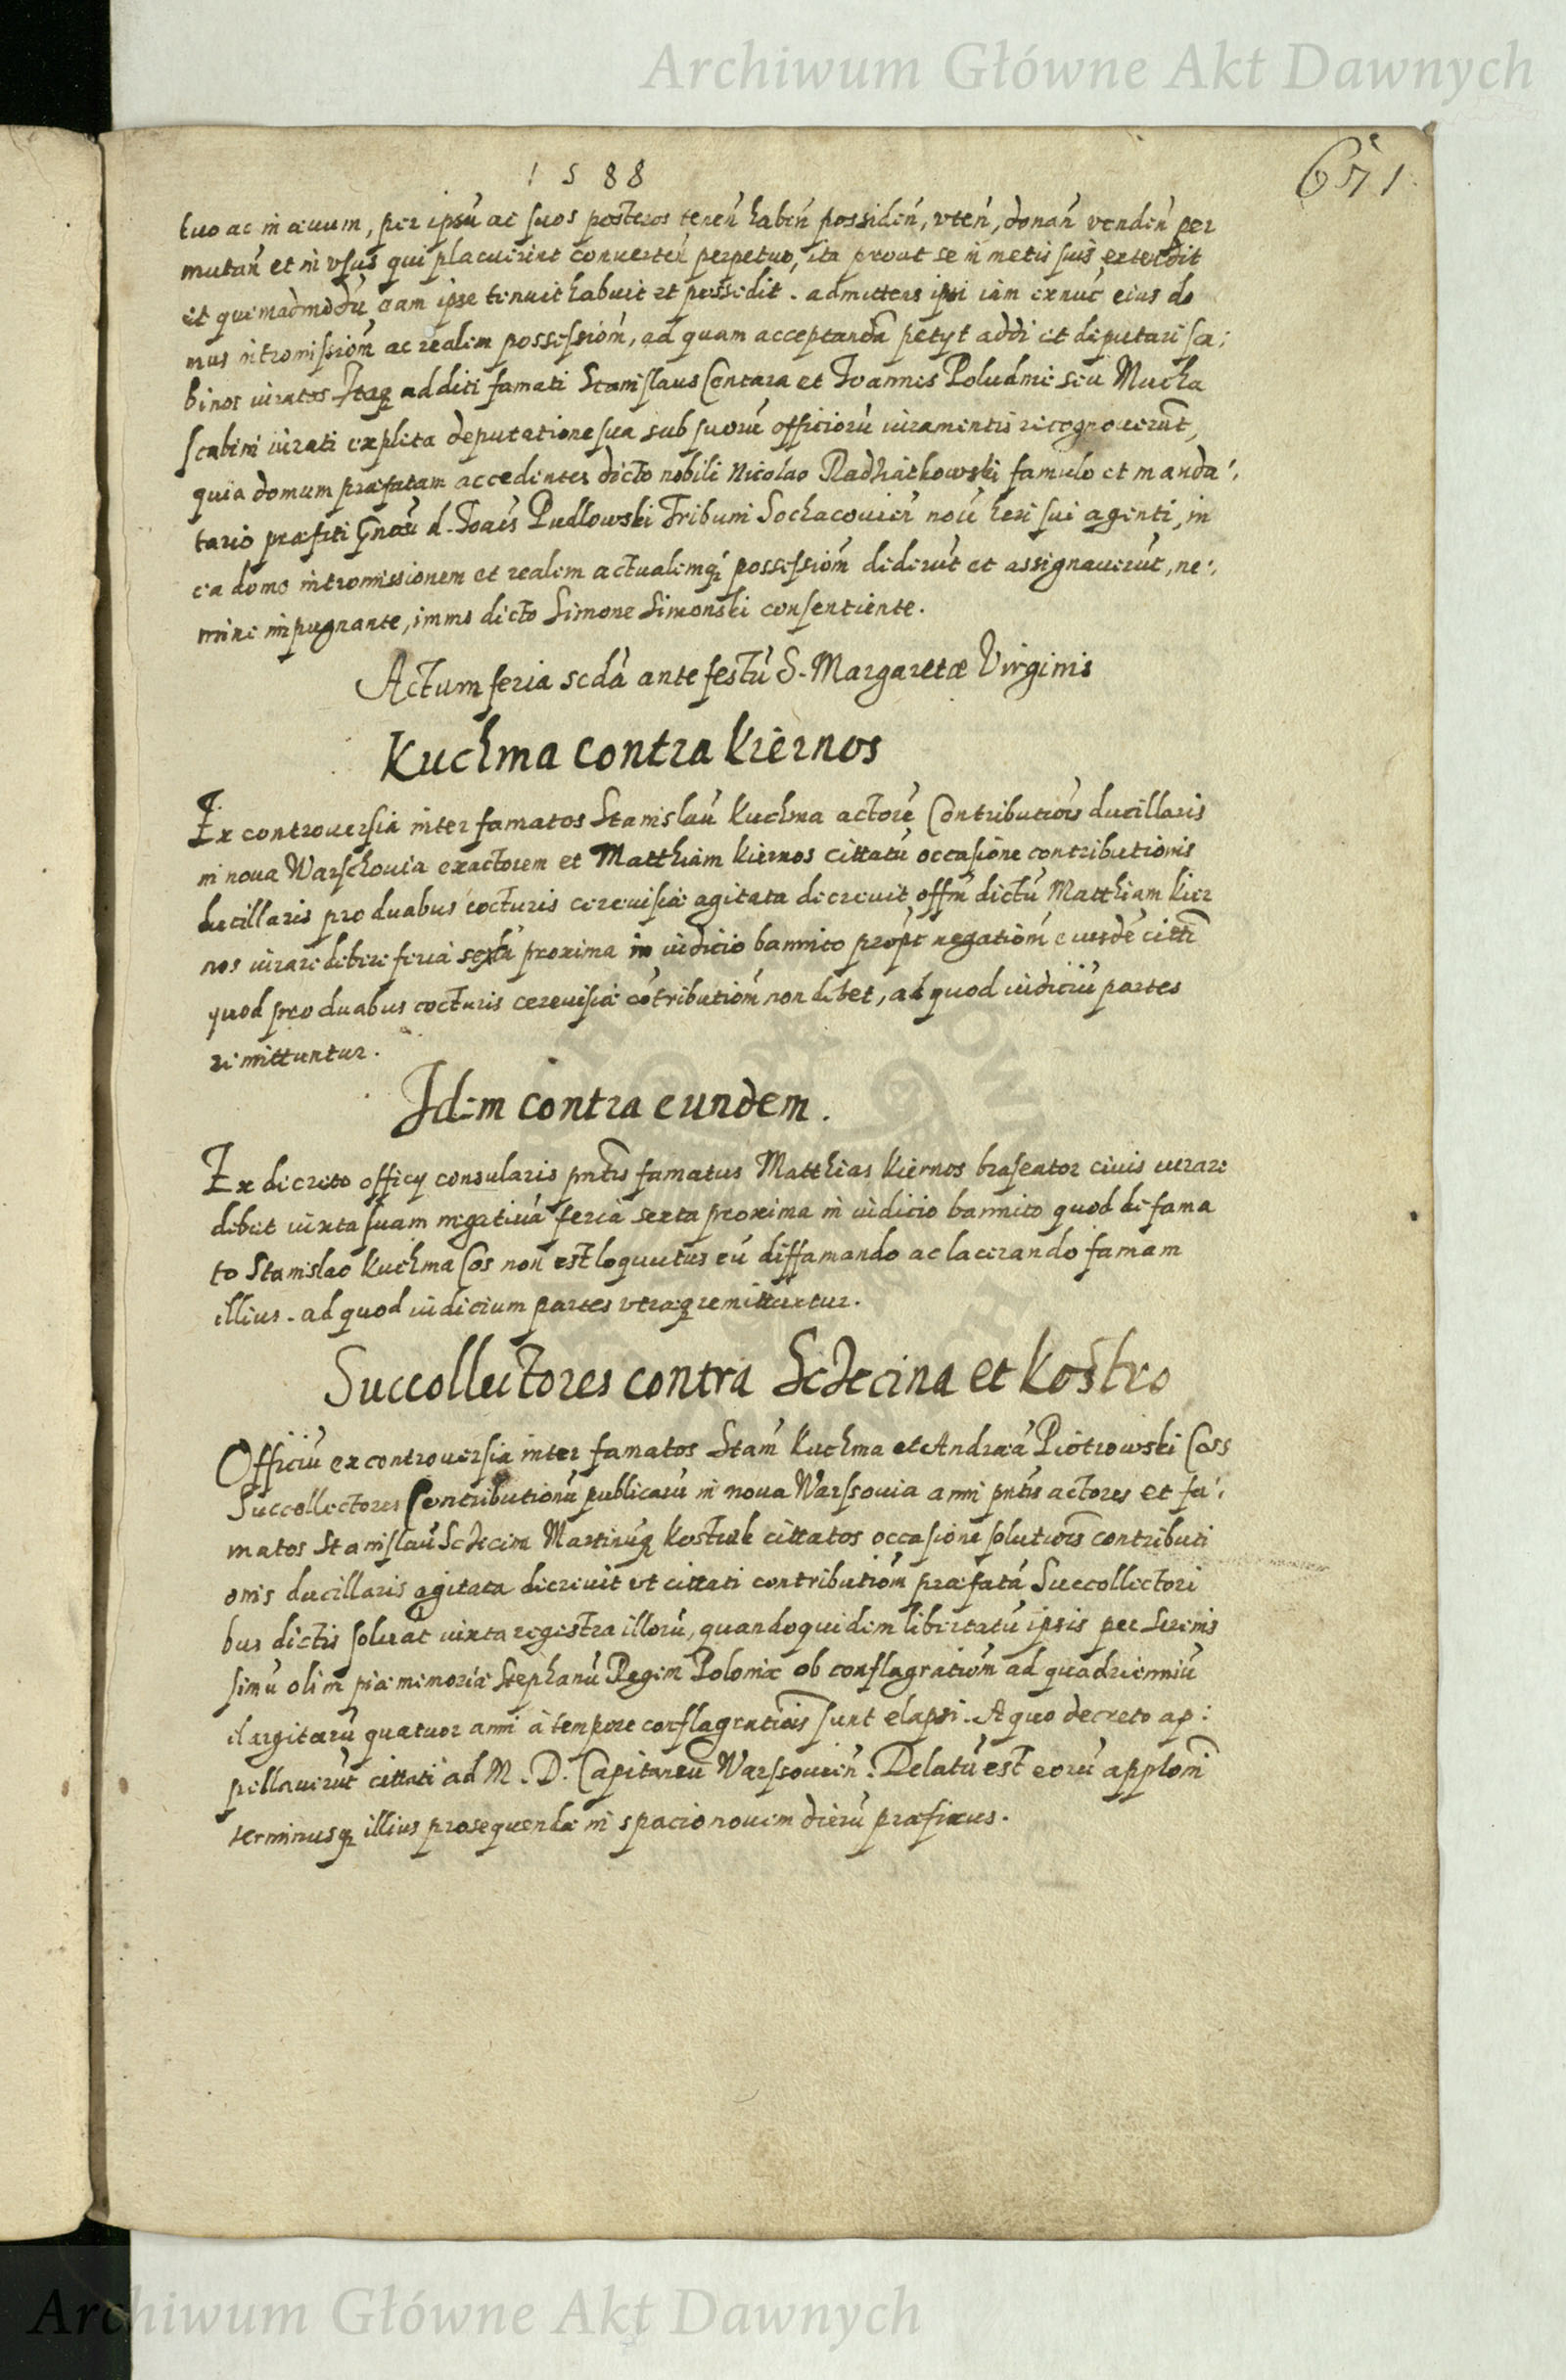 Archiwum Główne Akt Dawnych
1588
671
tuo ac in æuum, per ipsū ac suos posteros teneń habeń possideń, vteń, donań vendeń per
mutań et in vsus qui placuerint converteń perpetuo, ita prout se in metis suis extendit
et quemadmodū eam ipse tenuit habuit et possedit. admittens ipsi iam exnūc eius do
mus intromissiom̄ ac realem possessiom̄, ad quam acceptandā petyt addi et deputari sca:
binos iuratos Itaq₃ additi famati Stanislaus Centara et Joannes Poludnie seu Mucha
scabini iurati expleta deputatione sua sub suorū officiorū iuramentis recognouerūt,
quia domum præfatam accedentes dicto nobili Nicolao Radziątkowski famulo et manda:
tario præfati Gn̄osi d. Joan̄is Pudlowski Tribuni Sochacouień noīe heri sui agenti, in
ea domo intromissionem et realem actualemq₃ possessiom̄ dederūt et assignauerūt, ne:
mine impugnante, immo dicto Simone Simonski consentiente.
Actum feria scdā ante festū S. Margaretæ Virginis
Kuchma contra Kiernos
Ex controuersia inter famatos Stanislaū Kuchma actorē Contributiōis ducillaris
in noua Warschouia exactorem et Matthiam Kiernos cittatū occasione contributionis
ducillaris pro duabus cocturis cereuisiæ agitata decreuit offm̄ dictū Matthiam Kier
nos iurare debere feria sexta proxima in iudicio bannito propt negatiom̄ eiusdē citti
quod pro duabus cocturis cereuisiæ cōtributiom̄ non debet, ad quod iudiciū partes
remittuntur.
Idem contra eundem.
Ex decreto officy consularis pn̄tis famatus Matthias Kiernos braseator ciuis iurare
debet iuxta suam negatiuā feria sexta proxima in iudicio bannito quod de fama
to Stanislao Kuchma Cos non est loquutus eū diffamando ac lacerando famam
illius. ad quod iudicium partes vtræq₃ remittuntur.
Succollectores contra Sczecina et Kostro
Officiū ex controuersia inter famatos Stan̄ Kuchma et Andreā Piotrowski Coss
Succollectores Contributionū publicarū in noua Warssouia anni pn̄tis actores et fa:
matos Stanislaū Sczecina Martinūq₃ Kostrek cittatos occasione solutiōis contributi
onis ducillaris agitata decreuit vt cittati contributiom̄ præfatā Succollectori
bus dictis soluāt iuxta regestra illorū, quandoquidem libertatū ipsis per Serenis
simū olim piæ memoriæ Stephanū Regem Poloniæ ob conflagratiom̄ ad quadrienniū
elargitarū quatuor anni à tempore conflagratiōis sunt elapsi. A quo decreto ap:
pellauerūt cittati ad M. D. Capitaneū Warssouień. Delatū est eorū applom̄
terminusq₃ illius prosequendæ in spacio nouem dierū præfixus.
Archiwum Główne Akt Dawnych